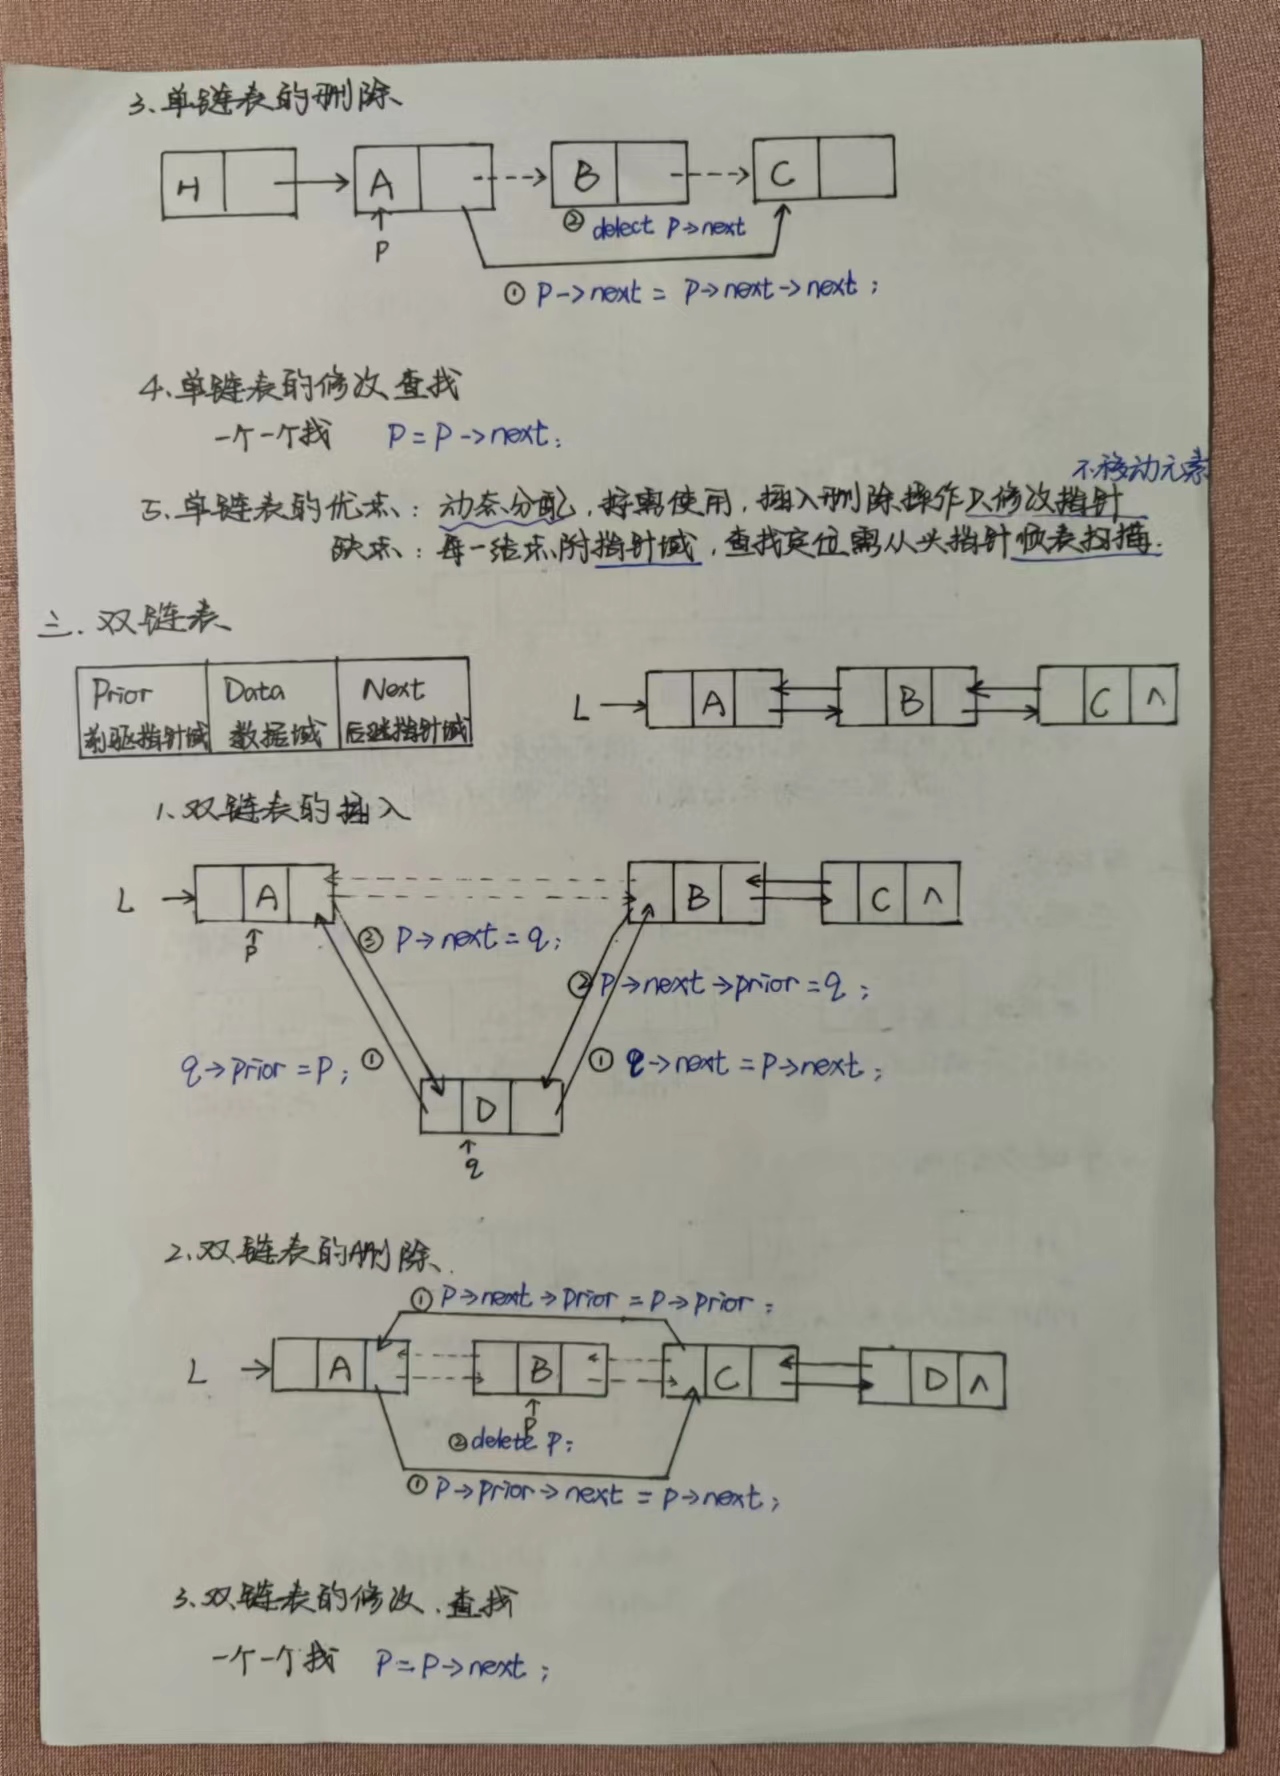 3、单链表的删除
H A B C
② delect P→next
P
① P→next = P→next→next;
4、单链表的修改、查找
一个一个找 P=P→next;
不移动元素
5、单链表的优点:动态分配,按需使用,插入删除操作只修改指针
缺点:每一结点附指针域,查找定位需从头指针顺表扫描.
三.双链表
Prior Data Next
前驱指针域 数据域 后继指针域
L→ A B C ∧
1、双链表的插入
L → A B C ∧
P
③ P→next=q;
② P→next→prior=q;
q→prior=P; ①
① q→next=P→next;
D
q
2、双链表的删除.
① P→next→prior=P→prior;
L → A B C D ∧
P
②delete P;
① P→prior→next=P→next;
3、双链表的修改、查找
一个一个找 P=P→next;